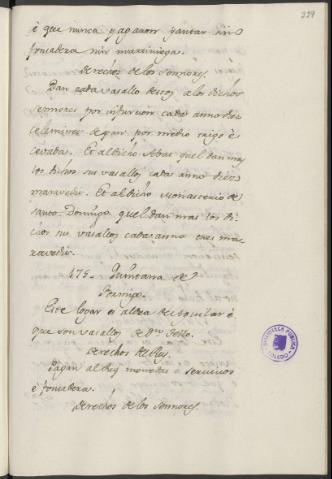 229
è que nunca pagaron yantar nin
fonsadera nin martiniega.
Derechos de los Sennores.
Dan cada vasallo destos à los dichos
sennores por infurcion cada anno diez
celemines de pan por medio trigo è
cevada. Et al dicho Abat quel dan mas
los dichos sus vasallos cada anno diez
maravedis. Et al dicho Monasterio de
Santo Domingo quel dan mas los di-
chos sus vasallos cada anno tres ma-
ravedis.
475. Quintana de
Este logar es aldea de è
que son vasallos de Dn Tello.
Derechos del Rey.
Pagan al Rey monedas è servicios
è fonsadera.
Derechos de los Sennores.
BIBLIOTECA PUBLICA
TOLEDO